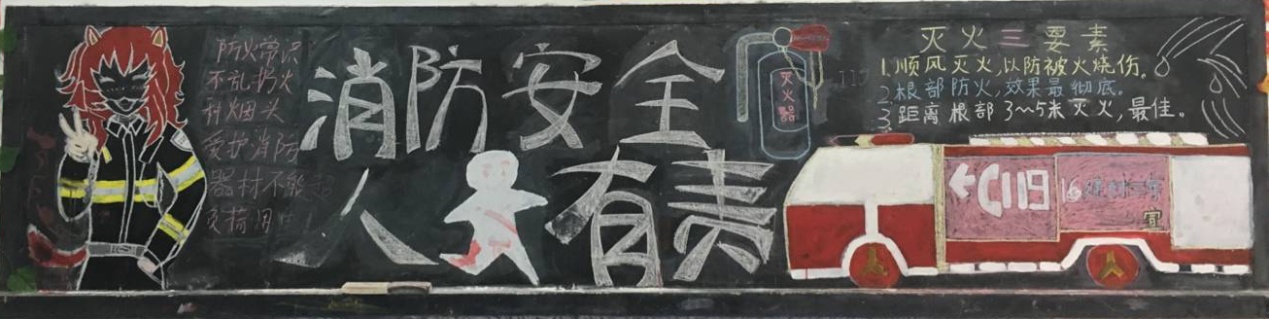 防火常识
不乱扔火
和烟头
爱护消防
器材不能
消防安全
人人有责
灭火器
灭火三要素
1.顺风灭火,以防被火烧伤。
2.根部防火,效果最彻底。
3.距离根部3~5米灭火,最佳。
119
16
宣